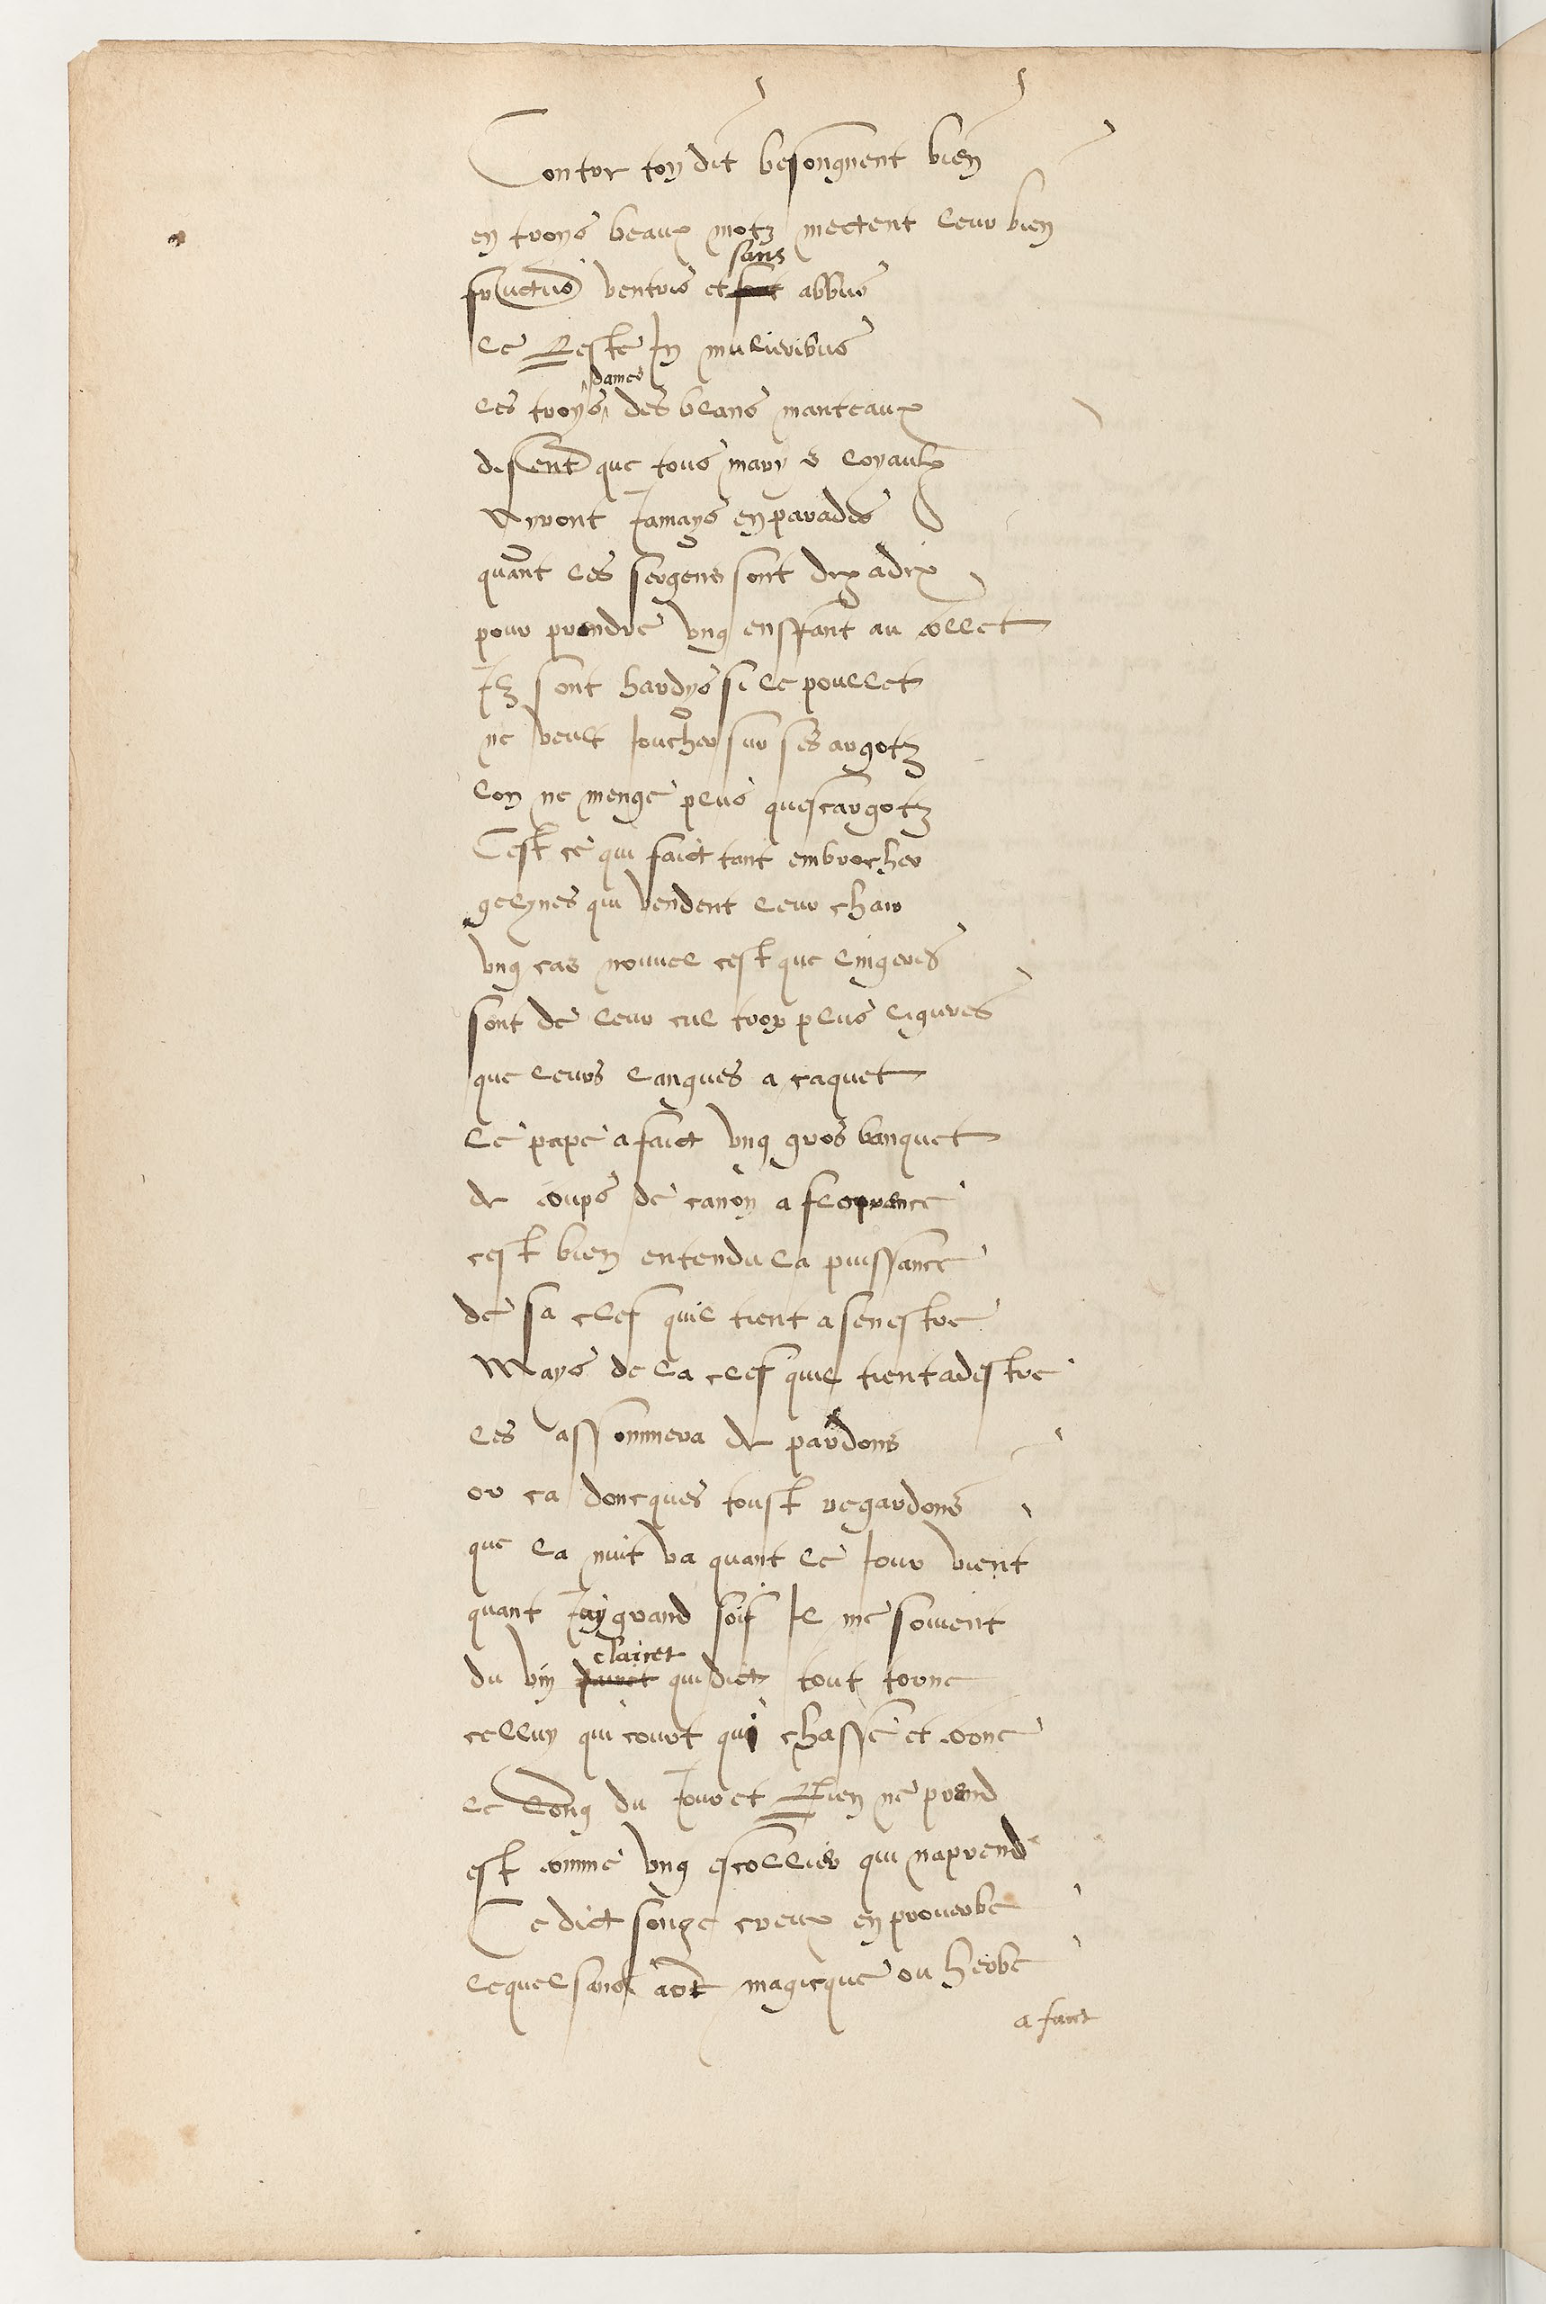 Contre toy dit besongnent bien
en troys beaux motz mectent leur bien
fructus ventris et sans abbus
le Reste In mulieribus
les troys dames des blans manteaux
disent que tous marys loyaulx
Nyront Jamays en parades
quant les sergens sont dix a dix
pour prendre ung enffant au collet
Ilz sont hardys si le poullet
ne veult Joucher sur ses argotz
lon ne menge plus quescargotz
Cest ce qui faict tant embrocher
gelynes qui vendent leur chair
ung cas nouvel cest que lingeres
sont de leur cul trop plus ligeres
que leurs langues a caquet
le pape a faict ung gros banquet
de coups de canon a florence
cest bien entendu la puissance
de sa clef quil tient a senestre
Mays de la clef quil tient a destre
les assommera de pardons
or ca doncques toust regardons
que la nuit va quant le Jour vient
quant Jay grand soif Il me souvient
du vin clairet qui dict tout torne
celluy qui court qui chasse et corne
le long du Jour et Rien ne prend
est comme ung escollier qui naprend
Ce dict songe creux en proverbe
lequel sans art magicque ou herbe
a faict